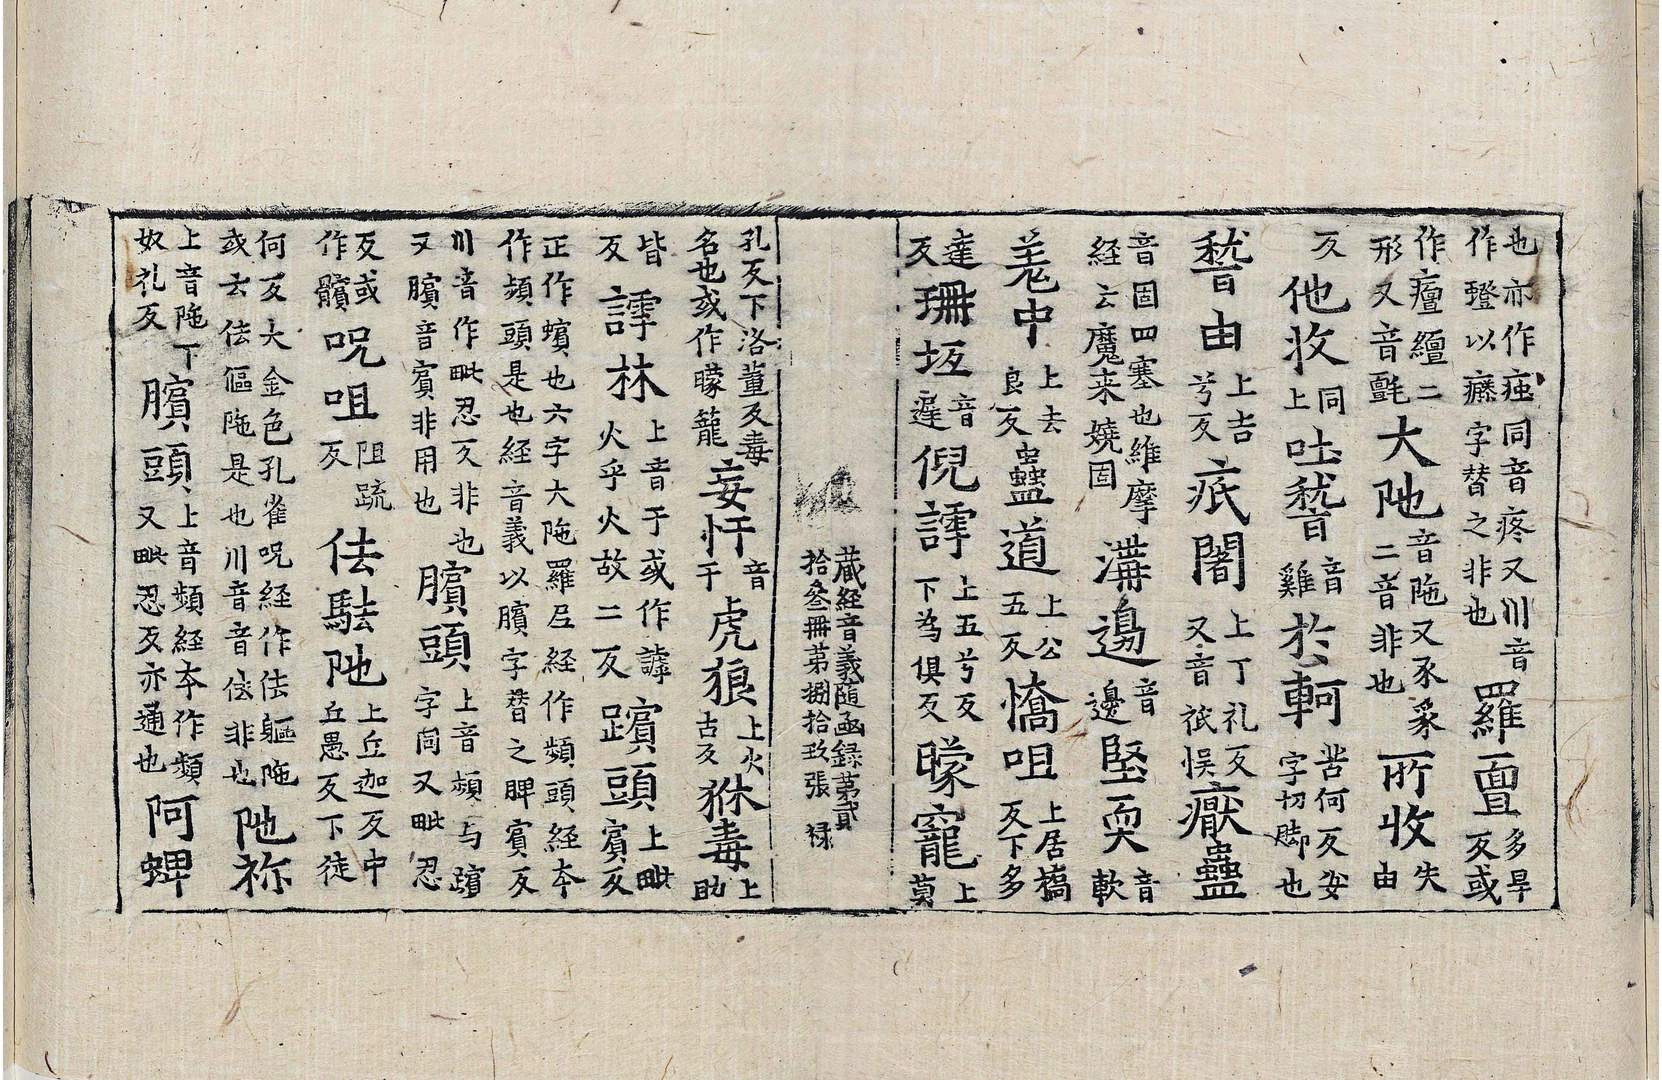 也亦作痖同音疼又川音作璒以癳字替之非也羅亶多旱反或
作癉繵二形又音氈大阤音陁又豕豸二音非也所收失由
反他收同上吐嵇音雞於軻苦何反女字切脚也
嵇由上吉兮反疧闍上丁礼反又音祇悮癥蠱
音固四塞也維摩経云魔来嬈固溝邊音邊堅耎音軟
羌中上去良反蠱道上公五反憍咀上居橋反下多
達反珊坻音遲倪謣上五兮反下為俱反矇寵上莫
藏経音義隨函録第貳拾叄冊第捌拾玖張 禄
孔反下洛董反毒名也或作矇籠妄忓音干虎狼上火古反猘毒上助
皆反謣林上音于或作謼火乎火故二反䠙頭上毗賓反
正作蠙也六字大陁羅尼経作頻頭経本作頻頭是也経音義以臏字替之脾賓反
川音作毗忍反非也又臏音賓非用也臏頭上音頻与䠙字同又毗忍
反或作髕呪咀阻疏反佉駄阤上丘迦反中丘愚反下徒
何反大金色孔雀呪経作佉軀陁或云佉傴陁是也川音音佉非也阤祢
上音陁下奴礼反臏頭上音頻経本作頻又毗忍反亦通也阿蜱